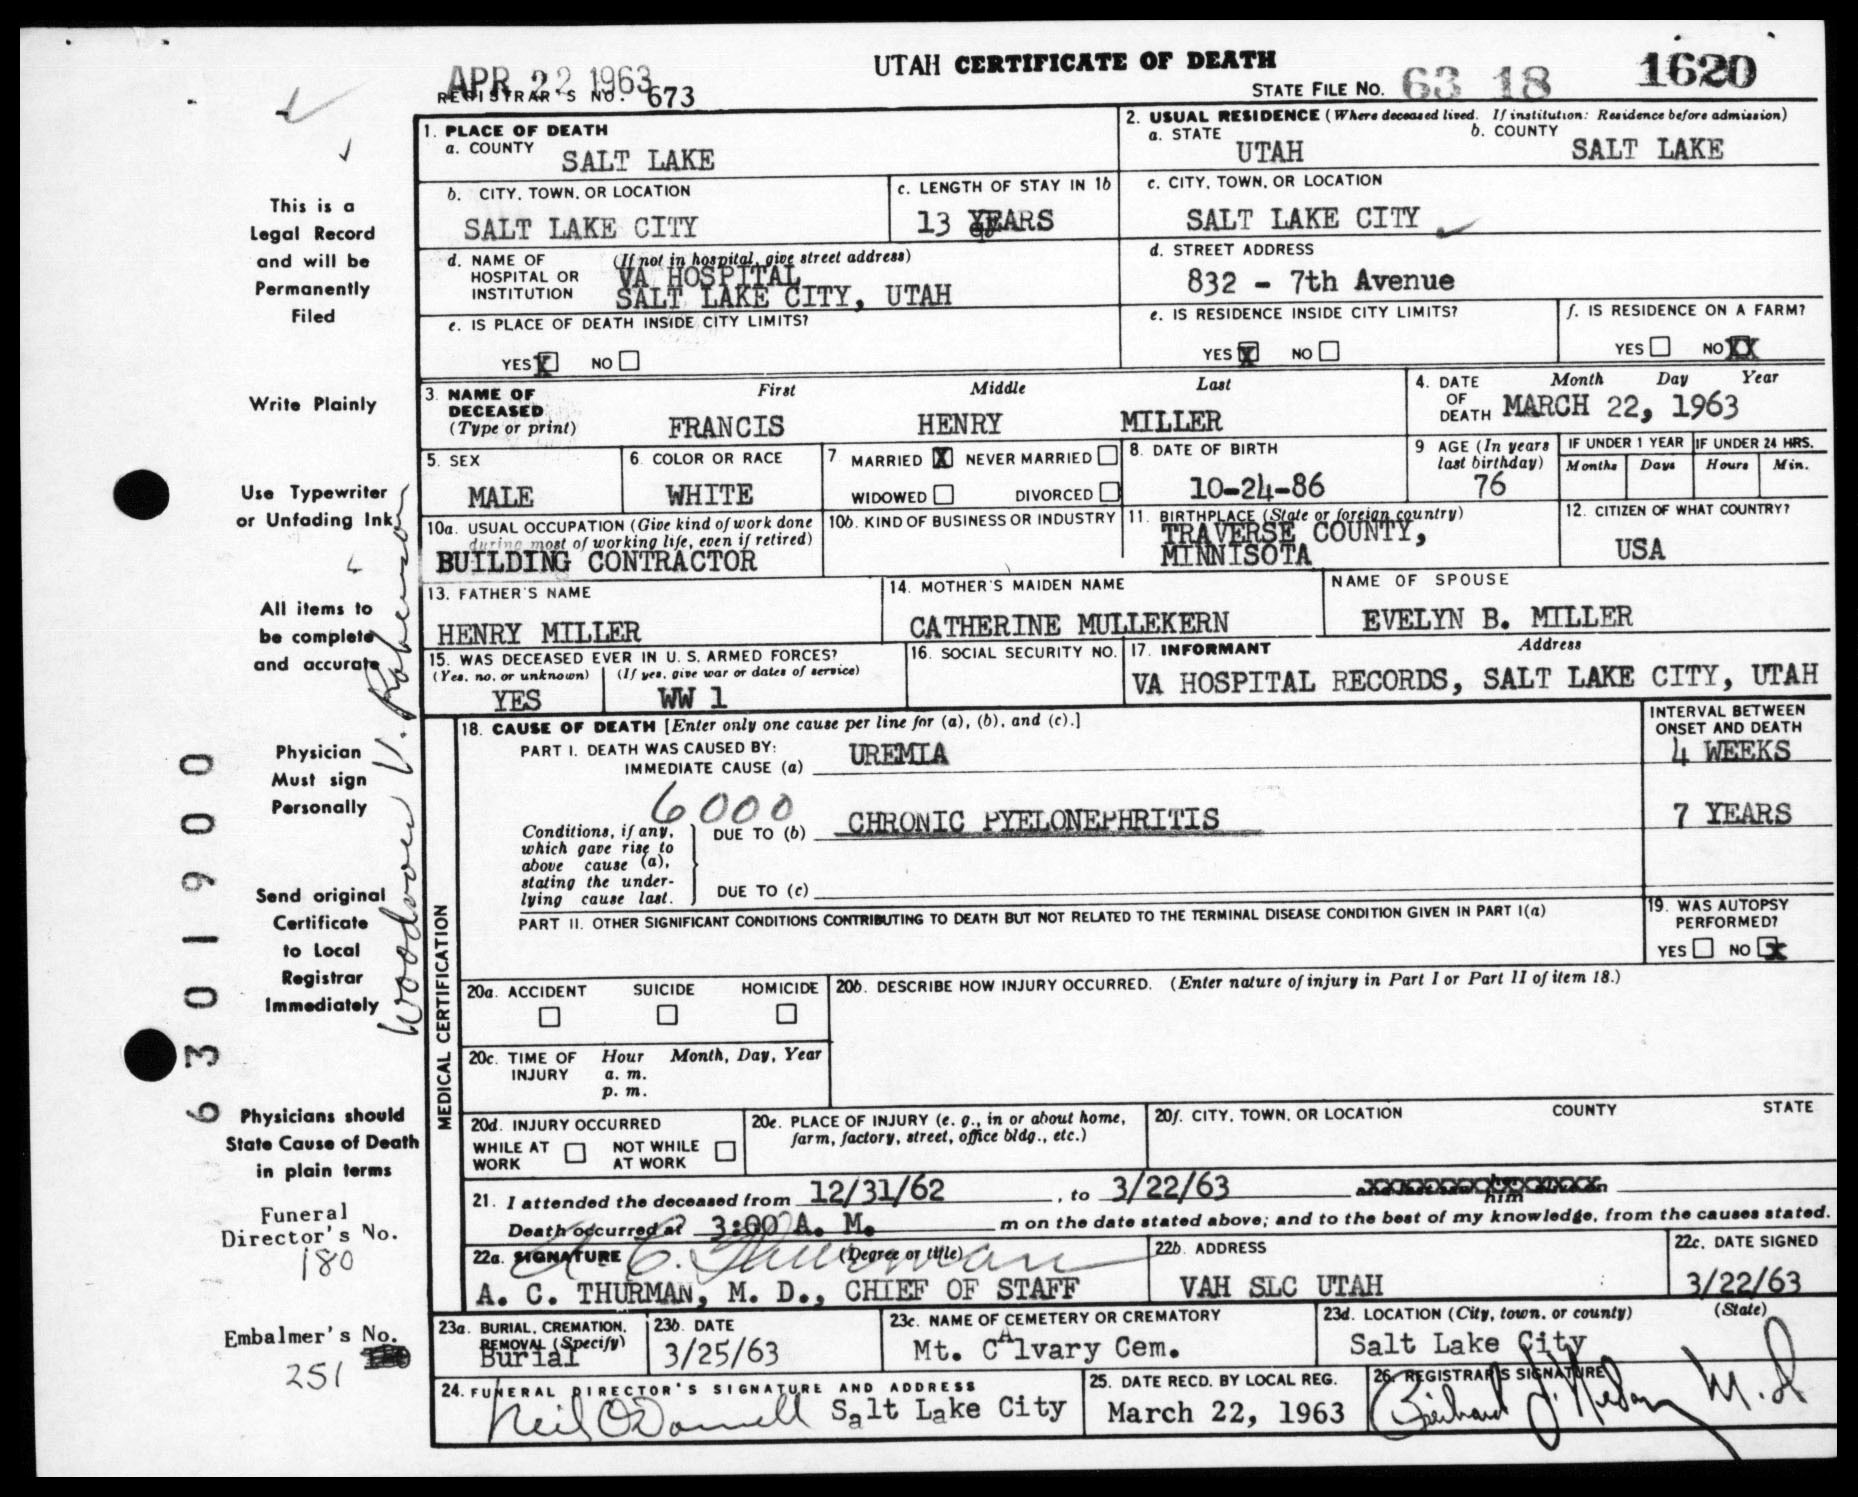 UTAH CERTIFICATE OF DEATH
APR 22 1963
REGISTRAR'S NO. 673
STATE FILE NO. 63 18 1620
This is a
Legal Record
and will be
Permanently
Filed
Write Plainly
Use Typewriter
or Unfading Ink
All items to
be complete
and accurate
Physician
Must sign
Personally
Send original
Certificate
to Local
Registrar
Immediately
Physicians should
State Cause of Death
in plain terms
Funeral
Director's No.
180
Embalmer's No.
251
6301900
Woodrow V. Roberson
1. PLACE OF DEATH
a. COUNTY
SALT LAKE
2. USUAL RESIDENCE (Where deceased lived. If institution: Residence before admission)
a. STATE b. COUNTY
UTAH SALT LAKE
b. CITY, TOWN, OR LOCATION
SALT LAKE CITY
c. LENGTH OF STAY IN 1b
13 YEARS
c. CITY, TOWN, OR LOCATION
SALT LAKE CITY
d. NAME OF HOSPITAL OR INSTITUTION (If not in hospital, give street address)
VA HOSPITAL
SALT LAKE CITY, UTAH
d. STREET ADDRESS
832 - 7th Avenue
e. IS PLACE OF DEATH INSIDE CITY LIMITS?
YES X NO
e. IS RESIDENCE INSIDE CITY LIMITS?
YES X NO
f. IS RESIDENCE ON A FARM?
YES NO XX
3. NAME OF DECEASED (Type or print)
First Middle Last
FRANCIS HENRY MILLER
4. DATE OF DEATH Month Day Year
MARCH 22, 1963
5. SEX
MALE
6. COLOR OR RACE
WHITE
7 MARRIED X NEVER MARRIED
WIDOWED DIVORCED
8. DATE OF BIRTH
10-24-86
9 AGE (In years last birthday)
76
IF UNDER 1 YEAR
Months Days
IF UNDER 24 HRS.
Hours Min.
10a. USUAL OCCUPATION (Give kind of work done
during most of working life, even if retired)
BUILDING CONTRACTOR
10b. KIND OF BUSINESS OR INDUSTRY
11. BIRTHPLACE (State or foreign country)
TRAVERSE COUNTY,
MINNISOTA
12. CITIZEN OF WHAT COUNTRY?
USA
13. FATHER'S NAME
HENRY MILLER
14. MOTHER'S MAIDEN NAME
CATHERINE MULLEKERN
NAME OF SPOUSE
EVELYN B. MILLER
15. WAS DECEASED EVER IN U. S. ARMED FORCES?
(Yes, no, or unknown) (If yes, give war or dates of service)
YES WW 1
16. SOCIAL SECURITY NO.
17. INFORMANT Address
VA HOSPITAL RECORDS, SALT LAKE CITY, UTAH
MEDICAL CERTIFICATION
18. CAUSE OF DEATH [Enter only one cause per line for (a), (b), and (c).]
INTERVAL BETWEEN
ONSET AND DEATH
PART I. DEATH WAS CAUSED BY:
IMMEDIATE CAUSE (a) UREMIA 4 WEEKS
6000
Conditions, if any,
which gave rise to
above cause (a),
stating the under-
lying cause last.
DUE TO (b) CHRONIC PYELONEPHRITIS 7 YEARS
DUE TO (c)
PART II. OTHER SIGNIFICANT CONDITIONS CONTRIBUTING TO DEATH BUT NOT RELATED TO THE TERMINAL DISEASE CONDITION GIVEN IN PART I(a)
19. WAS AUTOPSY
PERFORMED?
YES NO X
20a. ACCIDENT SUICIDE HOMICIDE
20b. DESCRIBE HOW INJURY OCCURRED. (Enter nature of injury in Part I or Part II of item 18.)
20c. TIME OF INJURY Hour Month, Day, Year
a. m.
p. m.
20d. INJURY OCCURRED
WHILE AT WORK NOT WHILE AT WORK
20e. PLACE OF INJURY (e. g., in or about home,
farm, factory, street, office bldg., etc.)
20f. CITY, TOWN, OR LOCATION COUNTY STATE
21. I attended the deceased from 12/31/62, to 3/22/63 him
Death occurred at 3:00 A. M. m on the date stated above; and to the best of my knowledge, from the causes stated.
22a. SIGNATURE (Degree or title)
A. C. Thurman
A. C. THURMAN, M. D., CHIEF OF STAFF
22b. ADDRESS
VAH SLC UTAH
22c. DATE SIGNED
3/22/63
23a. BURIAL, CREMATION,
REMOVAL (Specify)
Burial
23b. DATE
3/25/63
23c. NAME OF CEMETERY OR CREMATORY
Mt. CAlvary Cem.
23d. LOCATION (City, town, or county) (State)
Salt Lake City
24. FUNERAL DIRECTOR'S SIGNATURE AND ADDRESS
Neil O'Donnell Salt Lake City
25. DATE RECD. BY LOCAL REG.
March 22, 1963
26. REGISTRAR'S SIGNATURE
M.D.